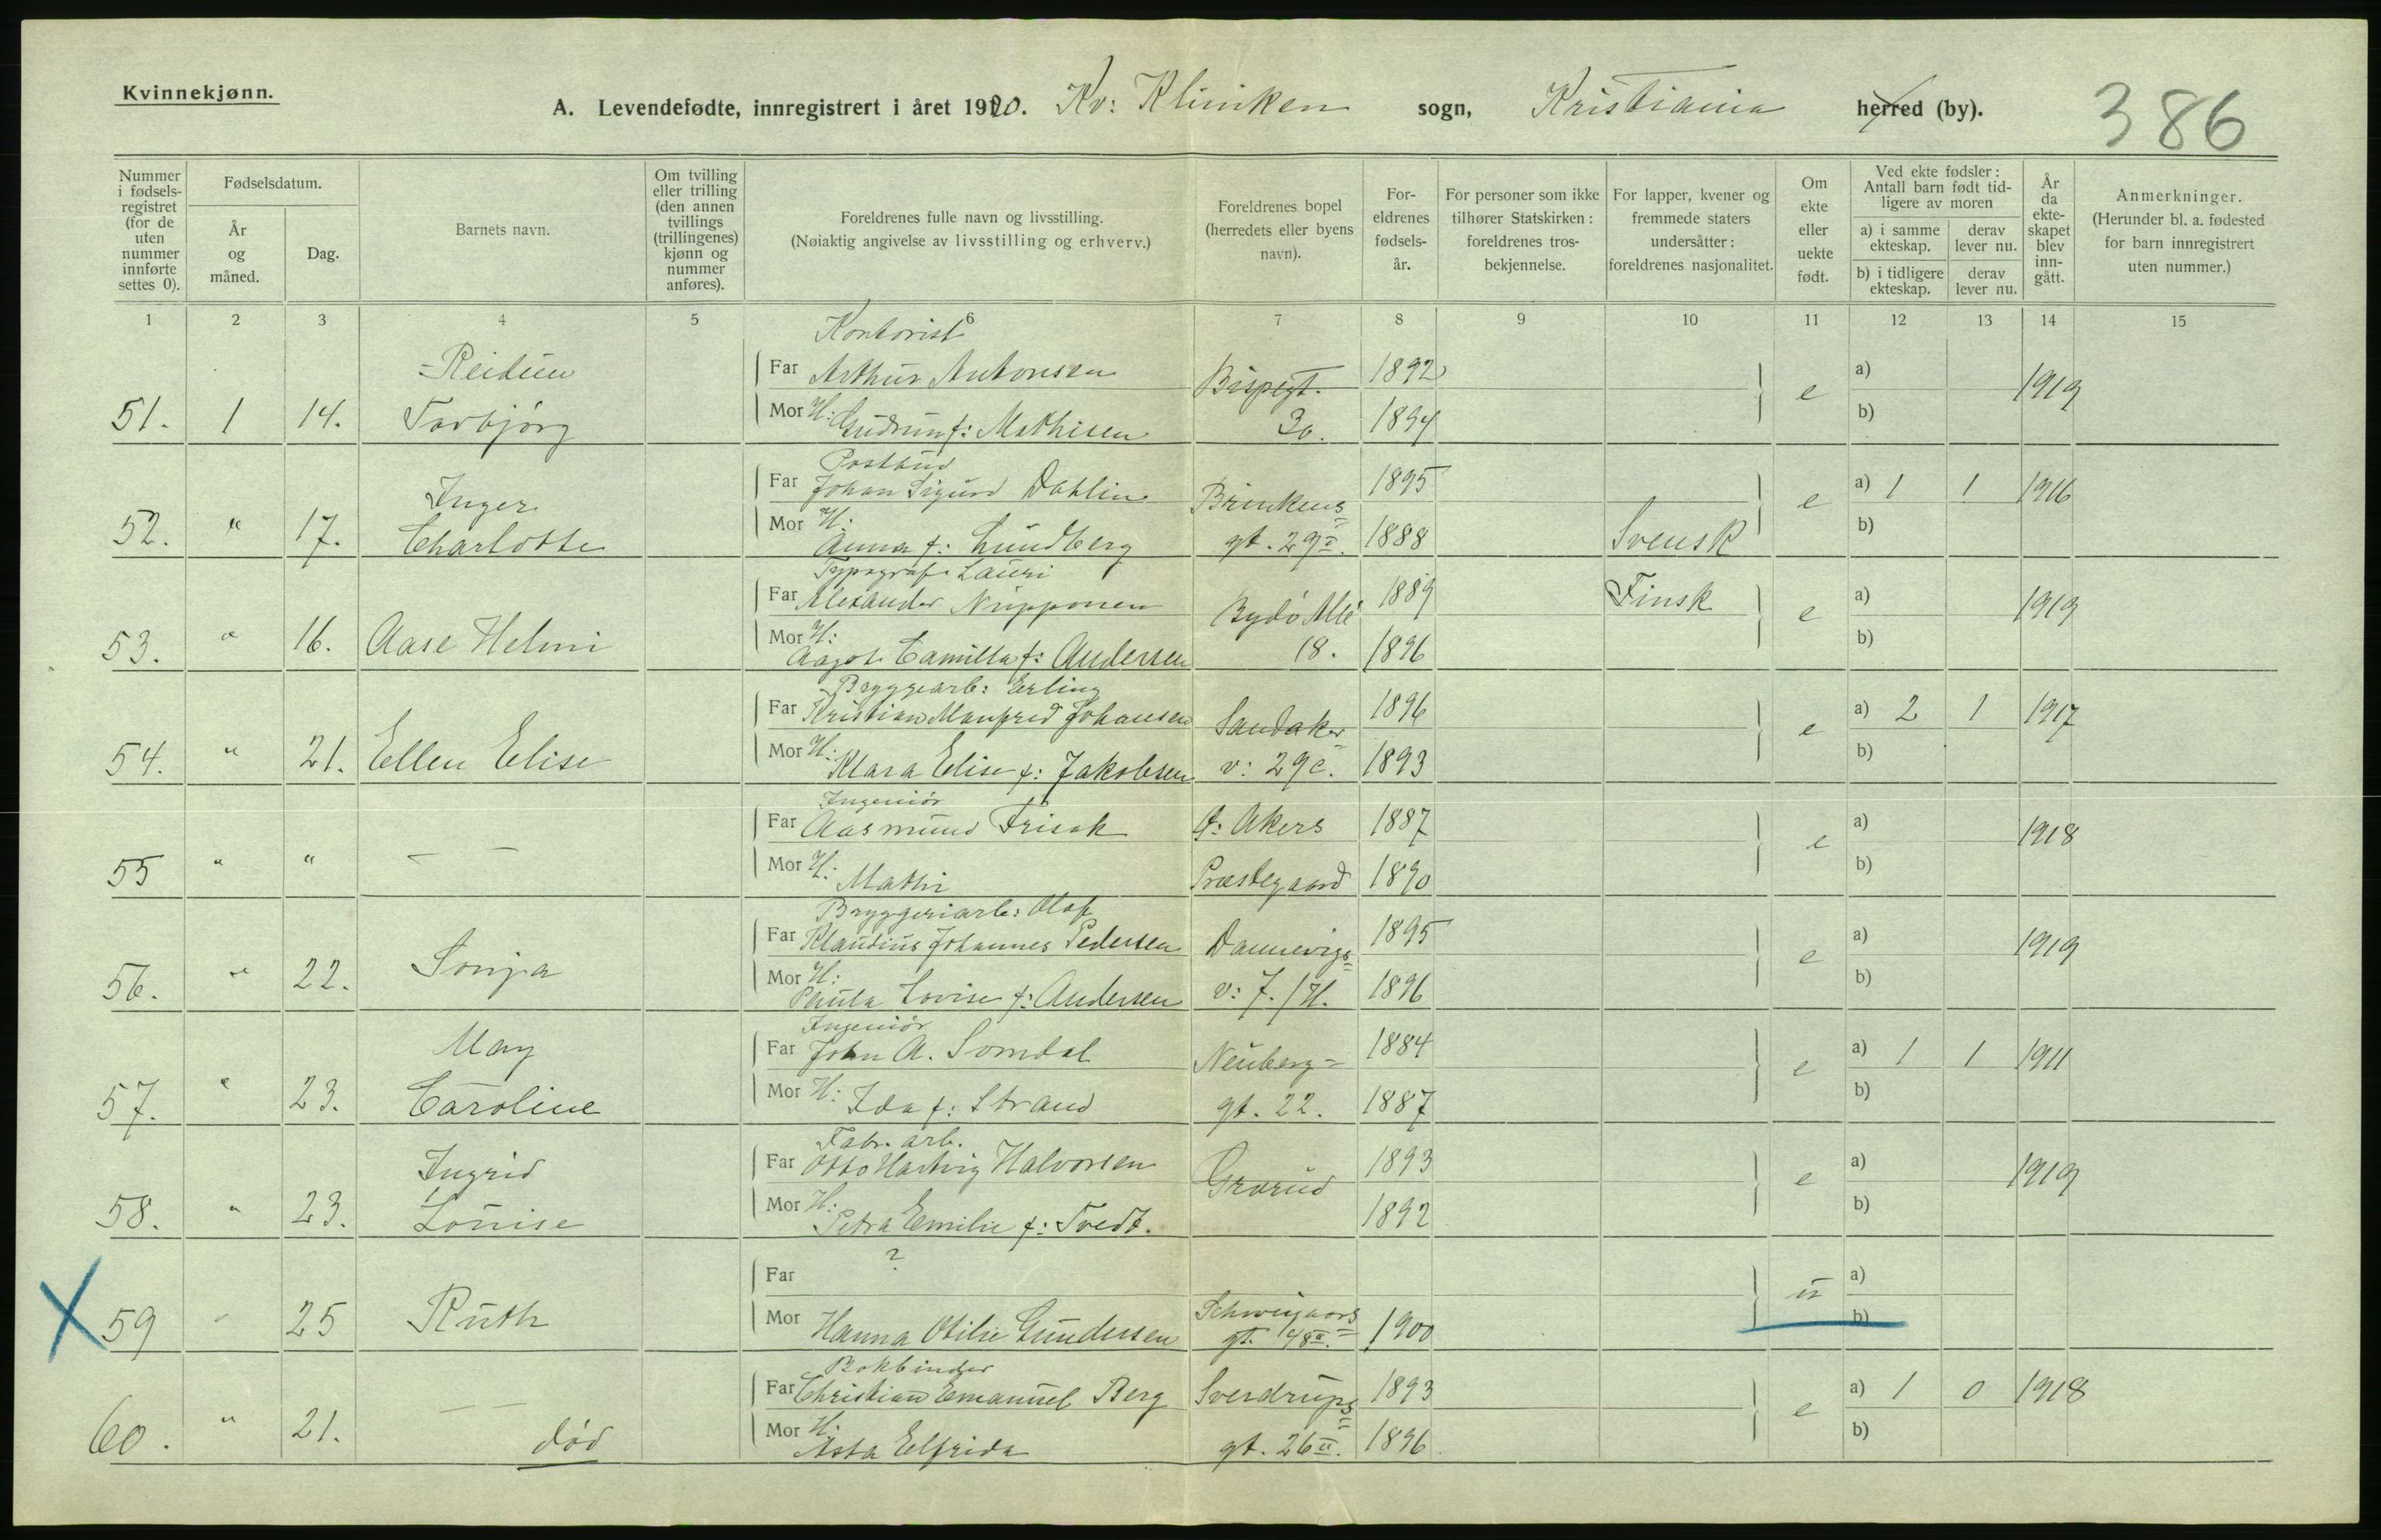 Kvinnekjønn.
A. Levendefødte, innregistrert i året 1920. Kv: Kliniken sogn, Kristiania herred (by).
386
Nummer i fødsels-registret (for de uten nummer innførte settes 0).
Fødselsdatum.
År og måned.
Dag.
Barnets navn.
Om tvilling eller trilling (den annen tvillings (trillingenes) kjønn og nummer anføres).
Foreldrenes fulle navn og livsstilling.
(Nøiaktig angivelse av livsstilling og erhverv.)
Foreldrenes bopel (herredets eller byens navn).
For-eldrenes fødsels-år.
For personer som ikke tilhører Statskirken: foreldrenes tros-bekjennelse.
For lapper, kvener og fremmede staters undersåtter: foreldrenes nasjonalitet.
Om ekte eller uekte født.
Ved ekte fødsler: Antall barn født tid-ligere av moren
a) i samme ekteskap.
derav lever nu.
b) i tidligere ekteskap.
derav lever nu.
År da ekte-skapet blev inn-gått.
Anmerkninger.
(Herunder bl. a. fødested for barn innregistrert uten nummer.)
1 2 3 4 5 6 7 8 9 10 11 12 13 14 15
Kontorist
Reidun Far Arthur Antonsen Bispegt. 1892 e a) 1919
51. 1 14. Torbjørg Mor H: Gudrun f: Mathisen 30. 1894 b)
Postbud
Inger Far Johan Sigurd Dahlin Brinkens 1895 e a) 1 1 1916
52. " 17. Charlotte Mor H: Anna f: Lundberg gt. 29 1888 Svensk b)
Typograf Lauri
Far Alexander Nupponen Bygdø Allé 1889 Finsk e a) 1919
53. " 16. Aase Helmi Mor H: Aagot Camilla f: Andersen 18. 1896 b)
Bryggearb: Erling
Far Kristian Manfred Johansen Sandaker 1896 e a) 2 1 1917
54. " 21. Ellen Elise Mor H: Klara Elise f: Jakobsen v: 29c. 1893 b)
Ingeniör
Far Aasmund Frisak Akers 1887 e a) 1918
55 " " — — Mor H: Mathi Præstegaard 1890 b)
Bryggeriarb: Olaf
Far Klaudius Johannes Pedersen Dannevigs 1895 e a) 1919
56. " 22. Sonja Mor H: Paula Lovise f: Andersen v: 7. /H. 1896 b)
Ingeniör
May Far John A. Somdal Neuberg= 1884 e a) 1 1 1911
57. " 23. Caroline Mor H: Ida f: Strand gt. 22. 1887 b)
Fabr. arb.
Ingrid Far Otto Hartvig Halvorsen Grorud 1893 e a) 1919
58. " 23. Louise Mor H: Petra Emilie f: Tvedt. 1892 b)
Far ? u a)
X 59 " 25 Ruth Mor Hanna Otilie Gundersen Schweigaards gt. 48 II. 1900 b)
Bokbinder
Far Christian Emanuel Berg Sverdrups 1893 e a) 1 0 1918
60. " 21. — — død Mor H: Asta Elfrida gt. 26 II. 1896 b)